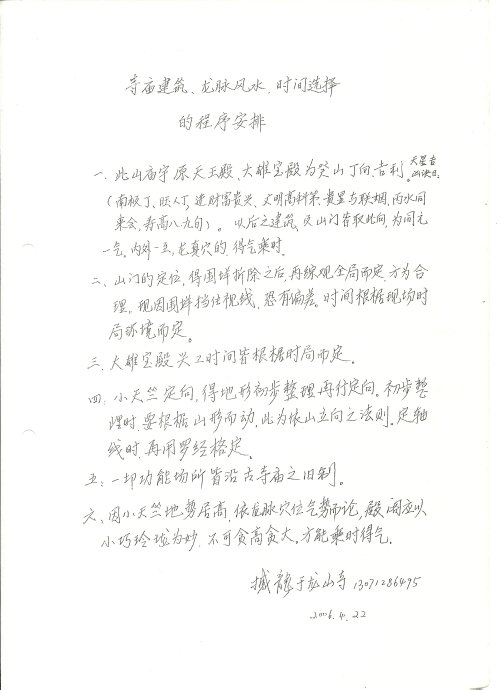 寺庙建筑、龙脉风水、时间选择
的程序安排
一、此山庙宇原天王殿、大雄宝殿为癸山丁向，吉利。天星吉
（南极丁、旺人丁，进财富贵兴，文明高科第，贵显与联姻，两水同
来会，寿高八九旬）。以后之建筑，及山门皆取此向，为同元
一气，内外一立，龙真穴的，得气乘时。
二、山门的定位，得围墙拆除之后，再综观全局而定，方为合
理。现因围墙挡住视线，恐有偏差。时间根据现场时
局环境而定。
三、大雄宝殿兴工时间皆根据时局而定。
四、小天竺定向，得地形初步整理再行定向。初步整
理时，要根据山形而动，此为依山立向之法则。定轴
线时，再用罗经格定。
五、一切功能场所皆沿古寺庙之旧制。
六、因小天竺地势居高，依龙脉穴位气势而论，殿阁应以
小巧玲珑为妙，不可贪高贪大，方能乘时得气。
于龙山寺 13071286495
2006.4.22